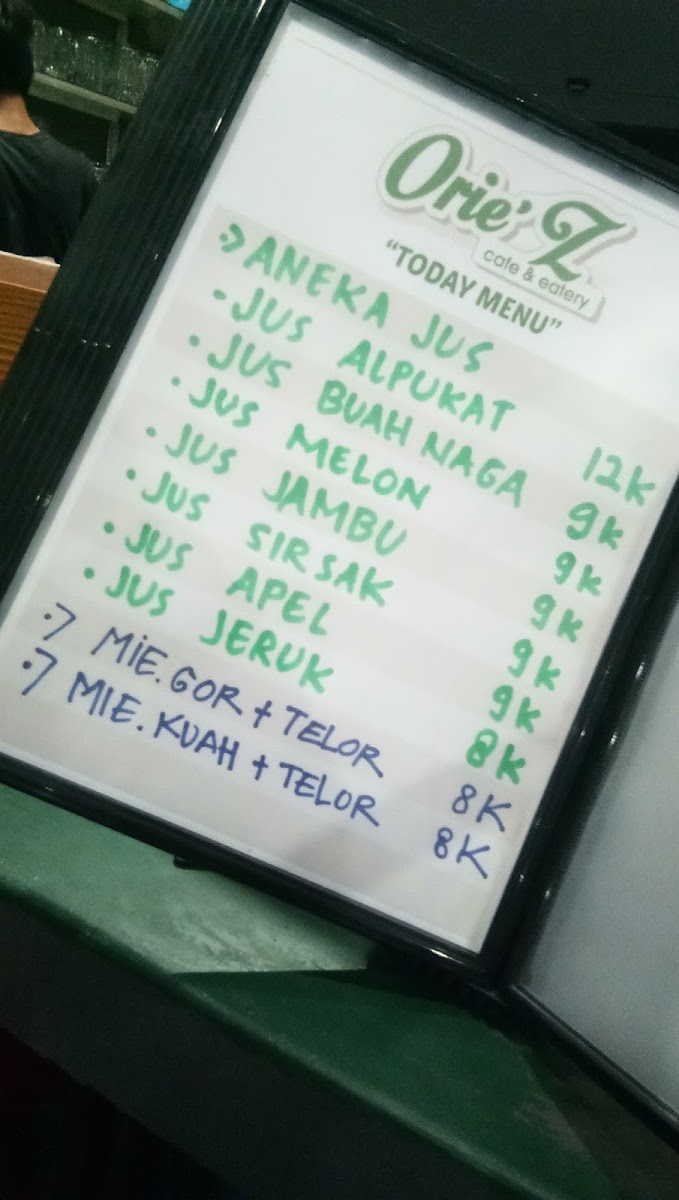 Orie'Z
cafe & eatery
"TODAY MENU"
ANEKA JUS
• JUS ALPUKAT 12K
• JUS BUAH NAGA 9K
• JUS MELON 9K
• JUS JAMBU 9K
• JUS SIRSAK 9K
• JUS APEL 9K
• JUS JERUK 8K
MIE. GOR + TELOR 8K
MIE. KUAH + TELOR 8K